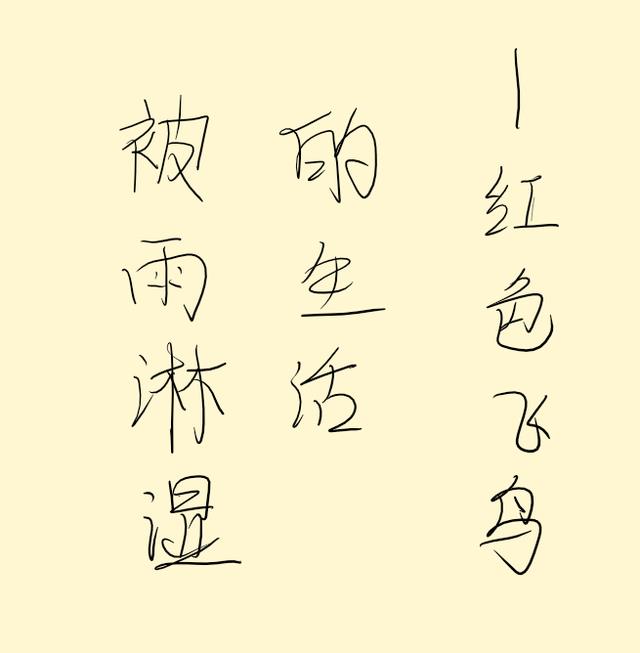 被雨淋湿
的生活
—红色飞鸟